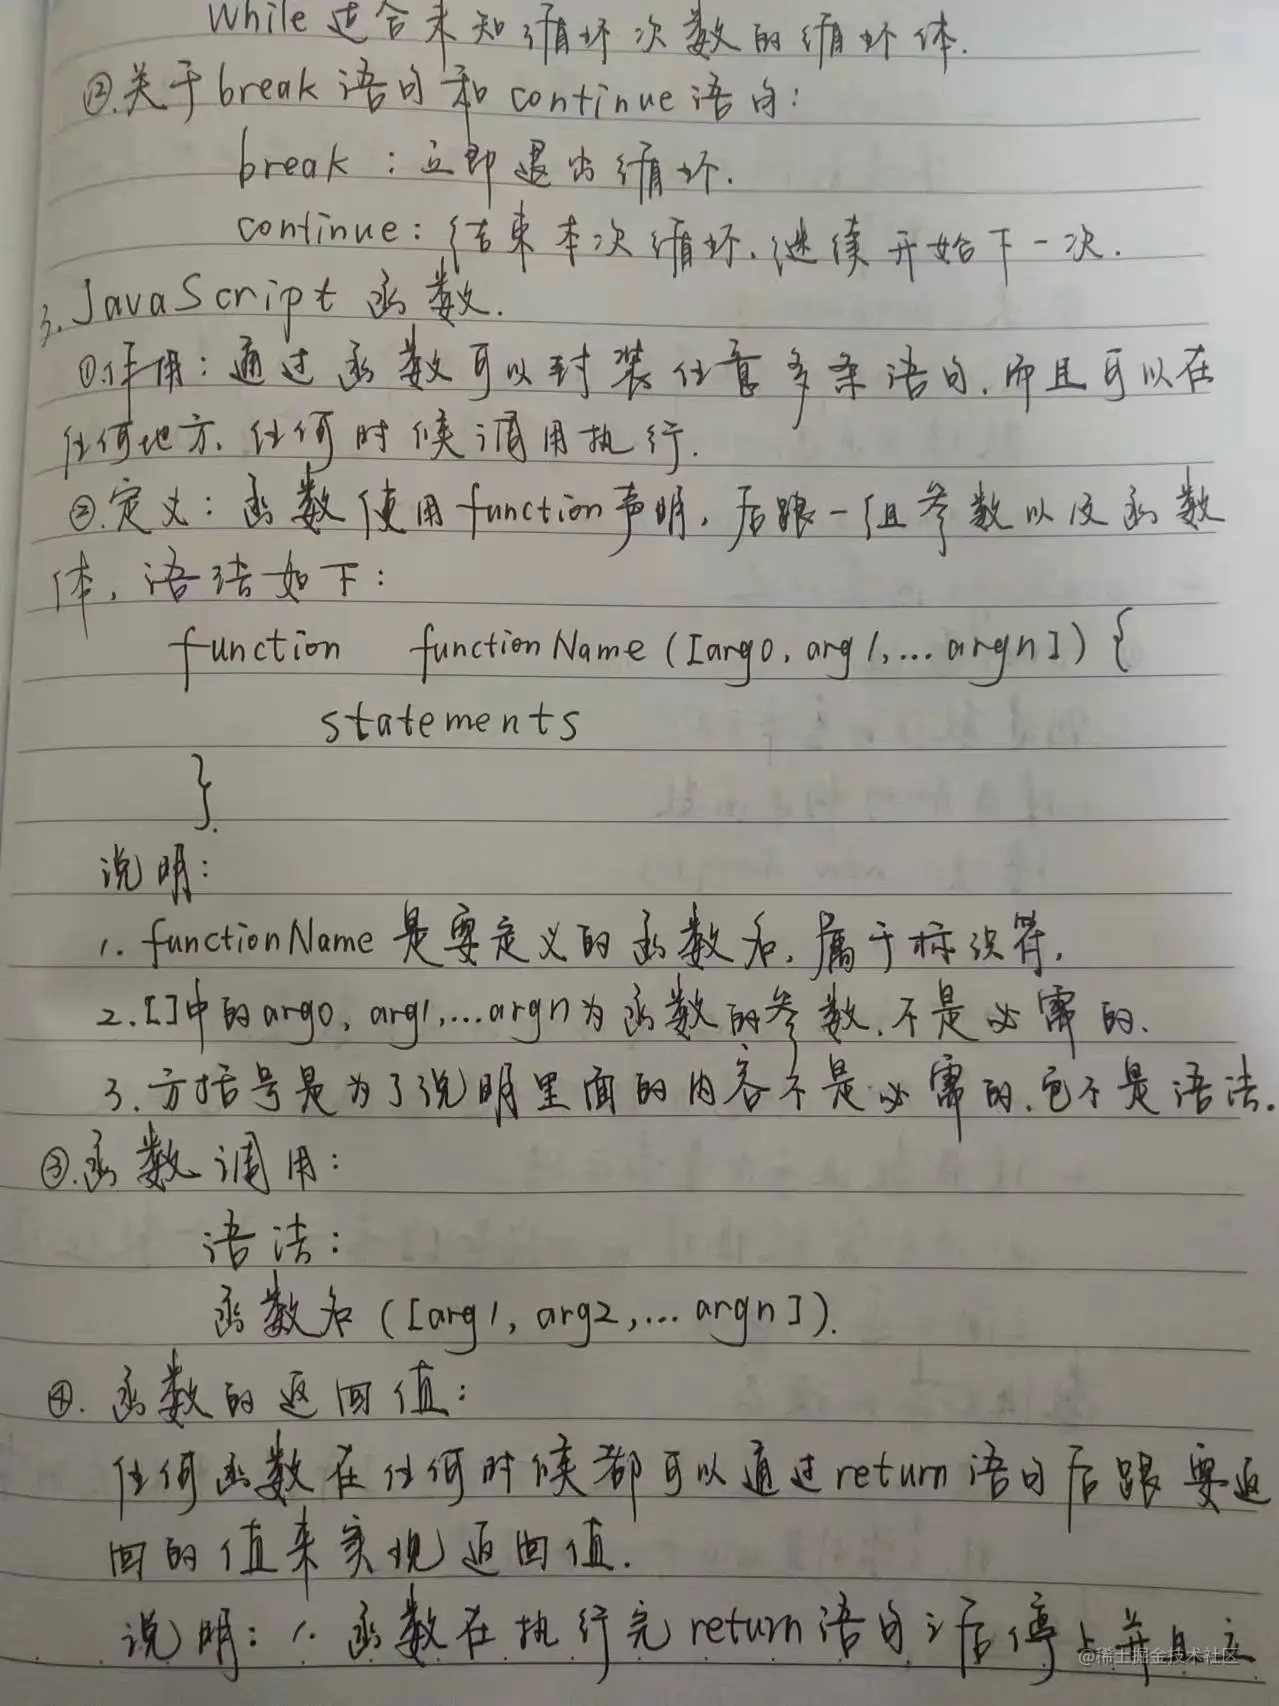 While适合未知循环次数的循环体.
②.关于break语句和continue语句:
break:立即退出循环.
continue:结束本次循环.继续开始下一次.
3.JavaScript函数.
①.作用:通过函数可以封装任意多条语句.而且可以在
任何地方、任何时候调用执行.
②.定义:函数使用function声明,后跟一组参数以及函数
体,语法如下:
function functionName([arg0,arg1,...argn]){
statements
}.
说明:
1.functionName是要定义的函数名,属于标识符,
2.[]中的arg0,arg1,...argn为函数的参数.不是必需的.
3.方括号是为了说明里面的内容不是必需的.它不是语法.
③.函数调用:
语法:
函数名([arg1,arg2,...argn]).
④.函数的返回值:
任何函数在任何时候都可以通过return语句后跟要返
回的值来实现返回值.
说明:1.函数在执行完return语句之后停止并且立
@稀土掘金技术社区